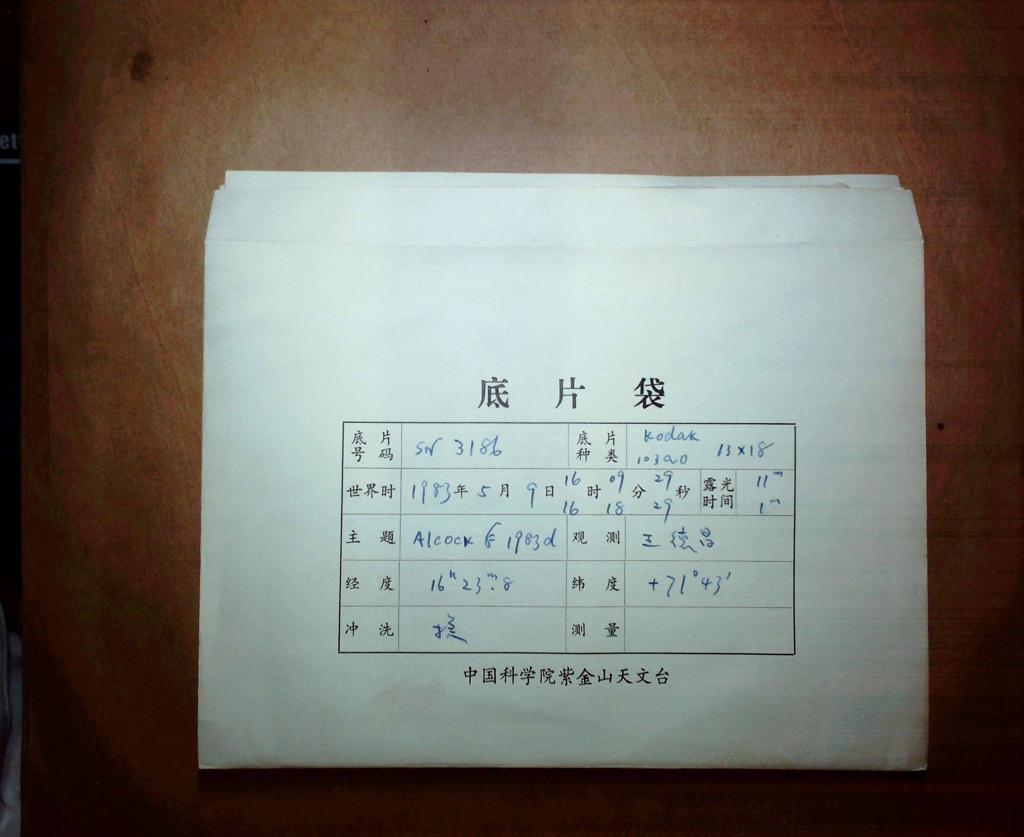 底片袋
底片号码 SN 3186 底片种类 Kodak 103aO 13×18
世界时 1983年5月9日 16时09分29秒 露光时间 11ᵐ
16 18 29 1ᵐ
主题 Alcock 1983d 观测 王德昌
经度 16ʰ23ᵐ.8 纬度 +71°43′
冲洗 测量
中国科学院紫金山天文台